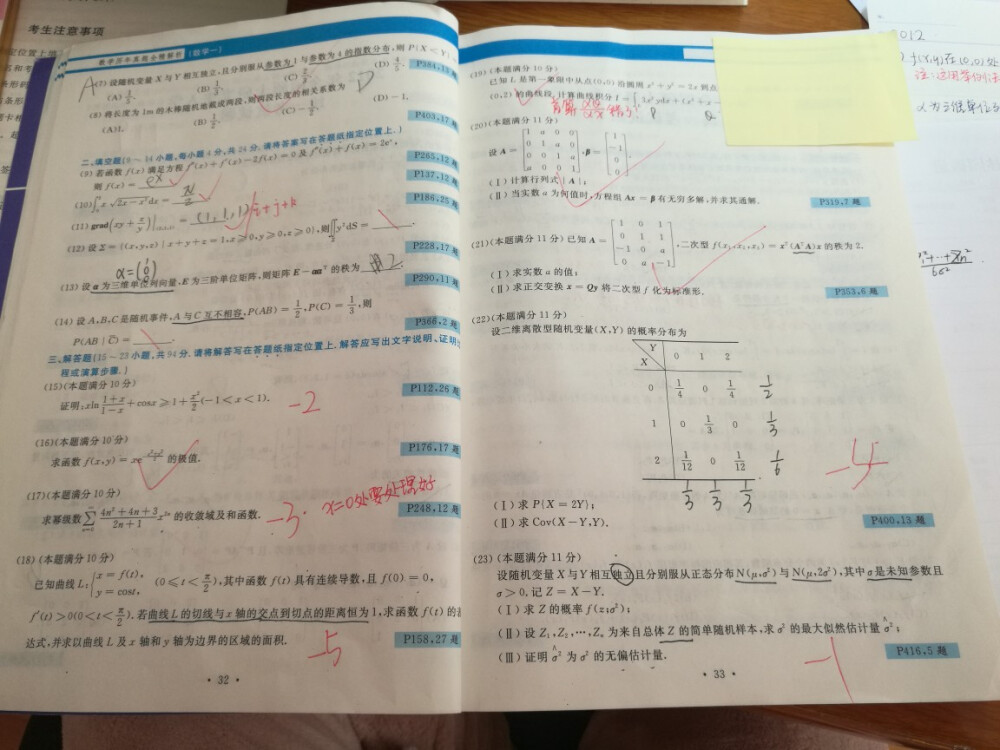 考生注意事项
数学历年真题全精解析(数学一)
A (7) 设随机变量 X 与 Y 相互独立,且分别服从参数为 1 与参数为 4 的指数分布,则 P{X<Y}
P384,15 题
(A) 1/5. (B) 1/3. (C) 2/5. (D) 4/5.
D
(8) 将长度为 1m 的木棒随机地截成两段,则两段长度的相关系数为
(A)1. (B) 1/2. (C) −1/2. (D) −1.
P403,17 题
二、填空题(9~14 小题,每小题 4 分,共 24 分. 请将答案写在答题纸指定位置上.)
(9) 若函数 f(x) 满足方程 f″(x)+f′(x)−2f(x)=0 及 f″(x)+f(x)=2eˣ,
则 f(x)= eˣ .
P265,12 题
(10) ∫ x √(2x−x²) dx = π/2
P137,12 题
(11) grad(xy+z/y)| = {1, 1, 1} i+j+k
P186,25 题
(12) 设 Σ={(x,y,z)|x+y+z=1,x≥0,y≥0,z≥0},则∬y²dS= .
P228,17 题
α=(1 0 0)
(13) 设 α 为三维单位列向量,E 为三阶单位矩阵,则矩阵 E−ααᵀ 的秩为 2.
P290,11 题
(14) 设 A,B,C 是随机事件,A 与 C 互不相容,P(AB)=1/2,P(C)=1/3,则
P(AB|C̄)= .
P366,2 题
三、解答题(15~23 小题,共 94 分. 请将解答写在答题纸指定位置上. 解答应写出文字说明、证明
程或演算步骤.)
(15)(本题满分 10 分)
P112,26 题
证明:xln (1+x)/(1−x) + cosx ≥ 1 + x²/2 (−1<x<1).
−2
(16)(本题满分 10 分)
P176,17 题
求函数 f(x,y)= 的极值.
(17)(本题满分 10 分)
−3. x=0处要处理好
求幂级数 Σ (4n²+4n+3)/(2n+1) x²ⁿ 的收敛域及和函数.
P248,12 题
(18)(本题满分 10 分)
已知曲线 L: {x=f(t), y=cost, (0≤t<π/2),其中函数 f(t) 具有连续导数,且 f(0)=0,
f′(t)>0(0<t<π/2). 若曲线 L 的切线与 x 轴的交点到切点的距离恒为 1,求函数 f(t) 的
达式,并求以曲线 L 及 x 轴和 y 轴为边界的区域的面积.
P158,27 题
−5
· 32 ·
(19)(本题满分 10 分)
已知 L 是第一象限中从点(0,0) 沿圆周 x²+y²=2x 到点
(0,2) 的曲线段,计算曲线积分 I=∫ 3x²ydx+(x³+x−
P Q
(20)(本题满分 11 分)
设 A=[1 a 0 0; 0 1 a 0; 0 0 1 a; a 0 0 1], β=[1; −1; 0; 0].
(Ⅰ) 计算行列式 |A|;
(Ⅱ) 当实数 a 为何值时,方程组 Ax=β 有无穷多解,并求其通解.
P319,7 题
(21)(本题满分 11 分) 已知 A=[1 0 1; 0 1 1; −1 0 a; 0 a −1],二次型 f(x₁,x₂,x₃)=xᵀ(AᵀA)x 的秩为 2.
(Ⅰ) 求实数 a 的值;
(Ⅱ) 求正交变换 x=Qy 将二次型 f 化为标准形.
P353,6 题
(22)(本题满分 11 分)
设二维离散型随机变量(X,Y) 的概率分布为
Y
X 0 1 2
0 1/4 0 1/4 1/2
1 0 1/3 0 1/3
2 1/12 0 1/12 1/6
1/3 1/3 1/3
−4
(Ⅰ) 求 P{X=2Y};
(Ⅱ) 求 Cov(X−Y,Y).
P400,13 题
(23)(本题满分 11 分)
设随机变量 X 与 Y 相互独立且分别服从正态分布 N(μ,σ²) 与 N(μ,2σ²),其中 σ 是未知参数且
σ>0. 记 Z=X−Y.
(Ⅰ) 求 Z 的概率 f(z;σ²);
(Ⅱ) 设 Z₁,Z₂,…,Zₙ 为来自总体 Z 的简单随机样本,求 σ² 的最大似然估计量 σ̂²;
(Ⅲ) 证明 σ̂² 为 σ² 的无偏估计量.
P416,5 题
−1
· 33 ·
f(x,y)在(0,0)处
α为三维单位